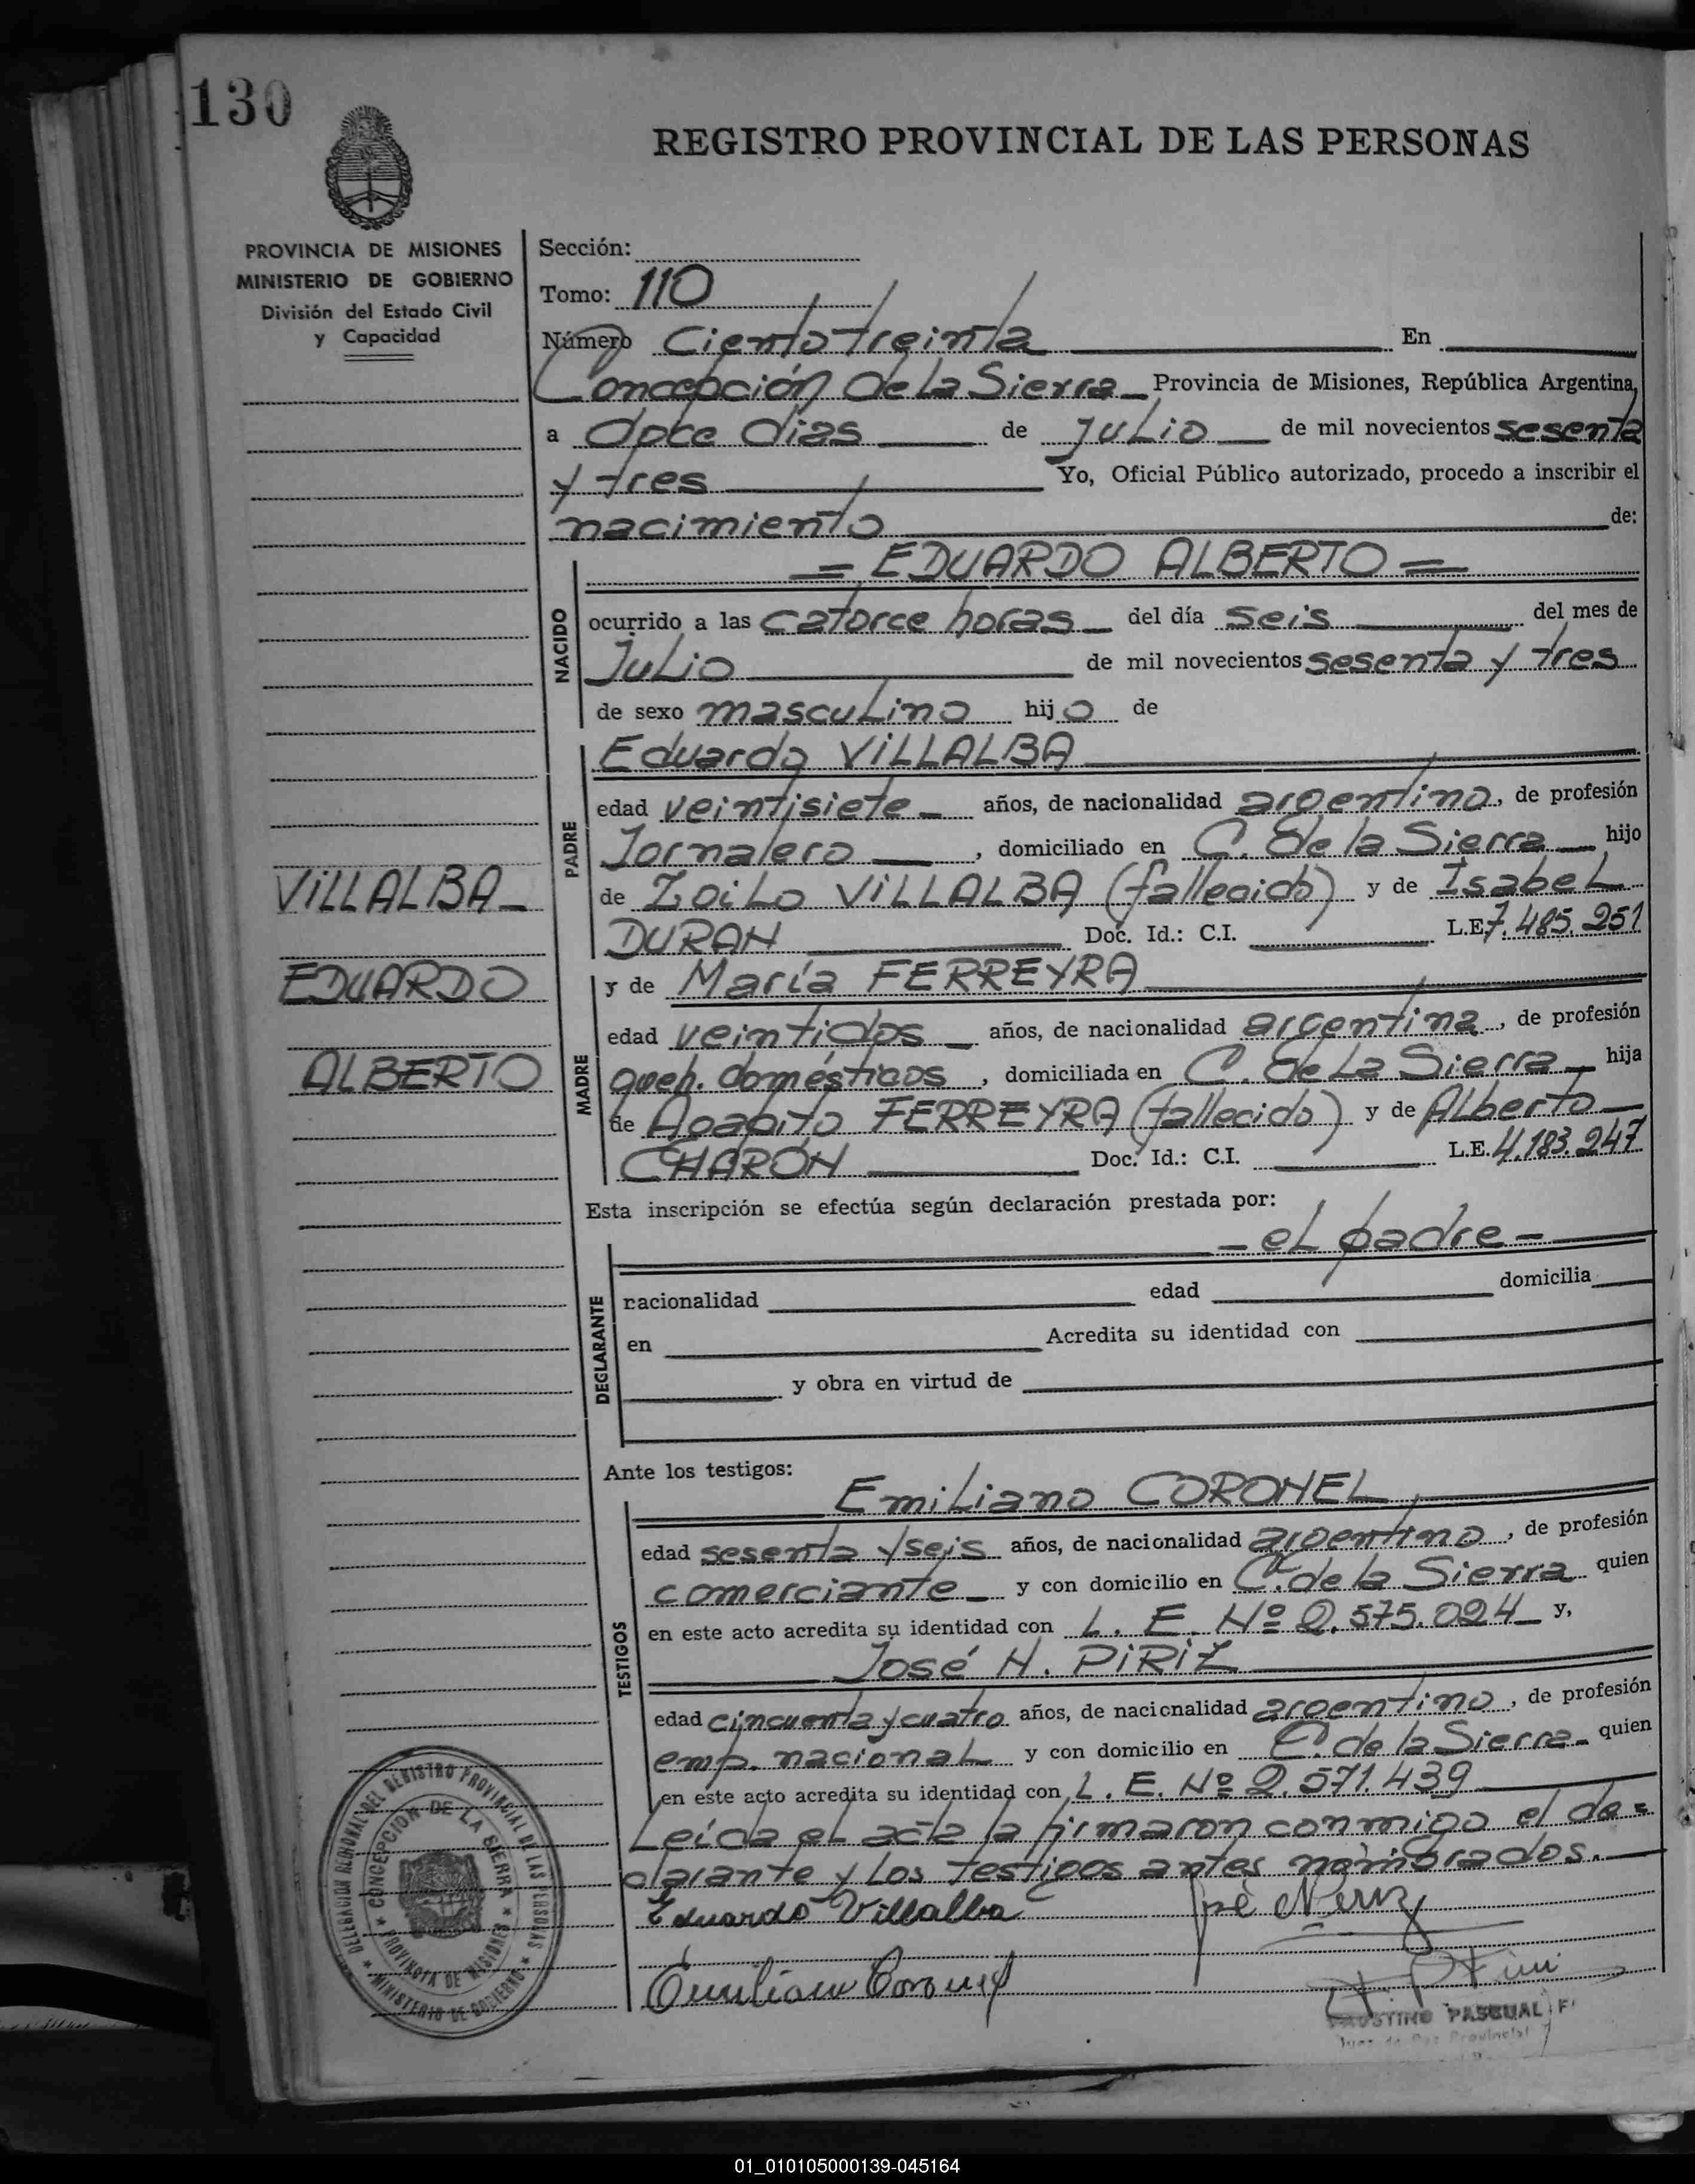 130
REGISTRO PROVINCIAL DE LAS PERSONAS
PROVINCIA DE MISIONES
MINISTERIO DE GOBIERNO
División del Estado Civil
y Capacidad
Sección:
Tomo: 110
Número Ciento treinta En
Concepción de la Sierra Provincia de Misiones, República Argentina,
a doce dias de Julio de mil novecientos sesenta
y tres Yo, Oficial Público autorizado, procedo a inscribir el
nacimiento de:
NACIDO
= EDUARDO ALBERTO =
ocurrido a las catorce horas del día seis del mes de
Julio de mil novecientos sesenta y tres
de sexo masculino hijo de
PADRE
Eduardo VILLALBA
edad veintisiete años, de nacionalidad argentino, de profesión
Jornalero, domiciliado en C. de la Sierra hijo
de Zoilo VILLALBA (fallecido) y de Isabel
DURAN Doc. Id.: C.I. L.E. 7.485.251
VILLALBA
EDUARDO
ALBERTO
MADRE
y de María FERREYRA
edad veintidos años, de nacionalidad argentina, de profesión
queh. domésticos, domiciliada en C. de La Sierra hija
de Agapito FERREYRA (fallecido) y de Alberto
CHARÓN Doc. Id.: C.I. L.E. 4.183.247
Esta inscripción se efectúa según declaración prestada por:
- el padre -
DECLARANTE
nacionalidad edad domicilia
en Acredita su identidad con
y obra en virtud de
Ante los testigos:
TESTIGOS
Emiliano CORONEL
edad sesenta y seis años, de nacionalidad argentino, de profesión
comerciante y con domicilio en C. de la Sierra quien
en este acto acredita su identidad con L. E. Nº 2.575.024 y,
José N. PIRIZ
edad cincuenta y cuatro años, de nacionalidad argentino, de profesión
emp. nacional y con domicilio en C. de la Sierra quien
en este acto acredita su identidad con L. E. Nº 2.571.439
Leída el acta la firmaron conmigo el de=
clarante y los testigos antes nombrados.
Eduardo Villalba
Emiliano Coronel
DELEGACION REGIONAL DEL REGISTRO PROVINCIAL DE LAS PERSONAS
MINISTERIO DE GOBIERNO
CONCEPCION DE LA SIERRA
PROVINCIA DE MISIONES
FAUSTINO PASCUAL
Juez de Paz Provincial
01_010105000139-045164